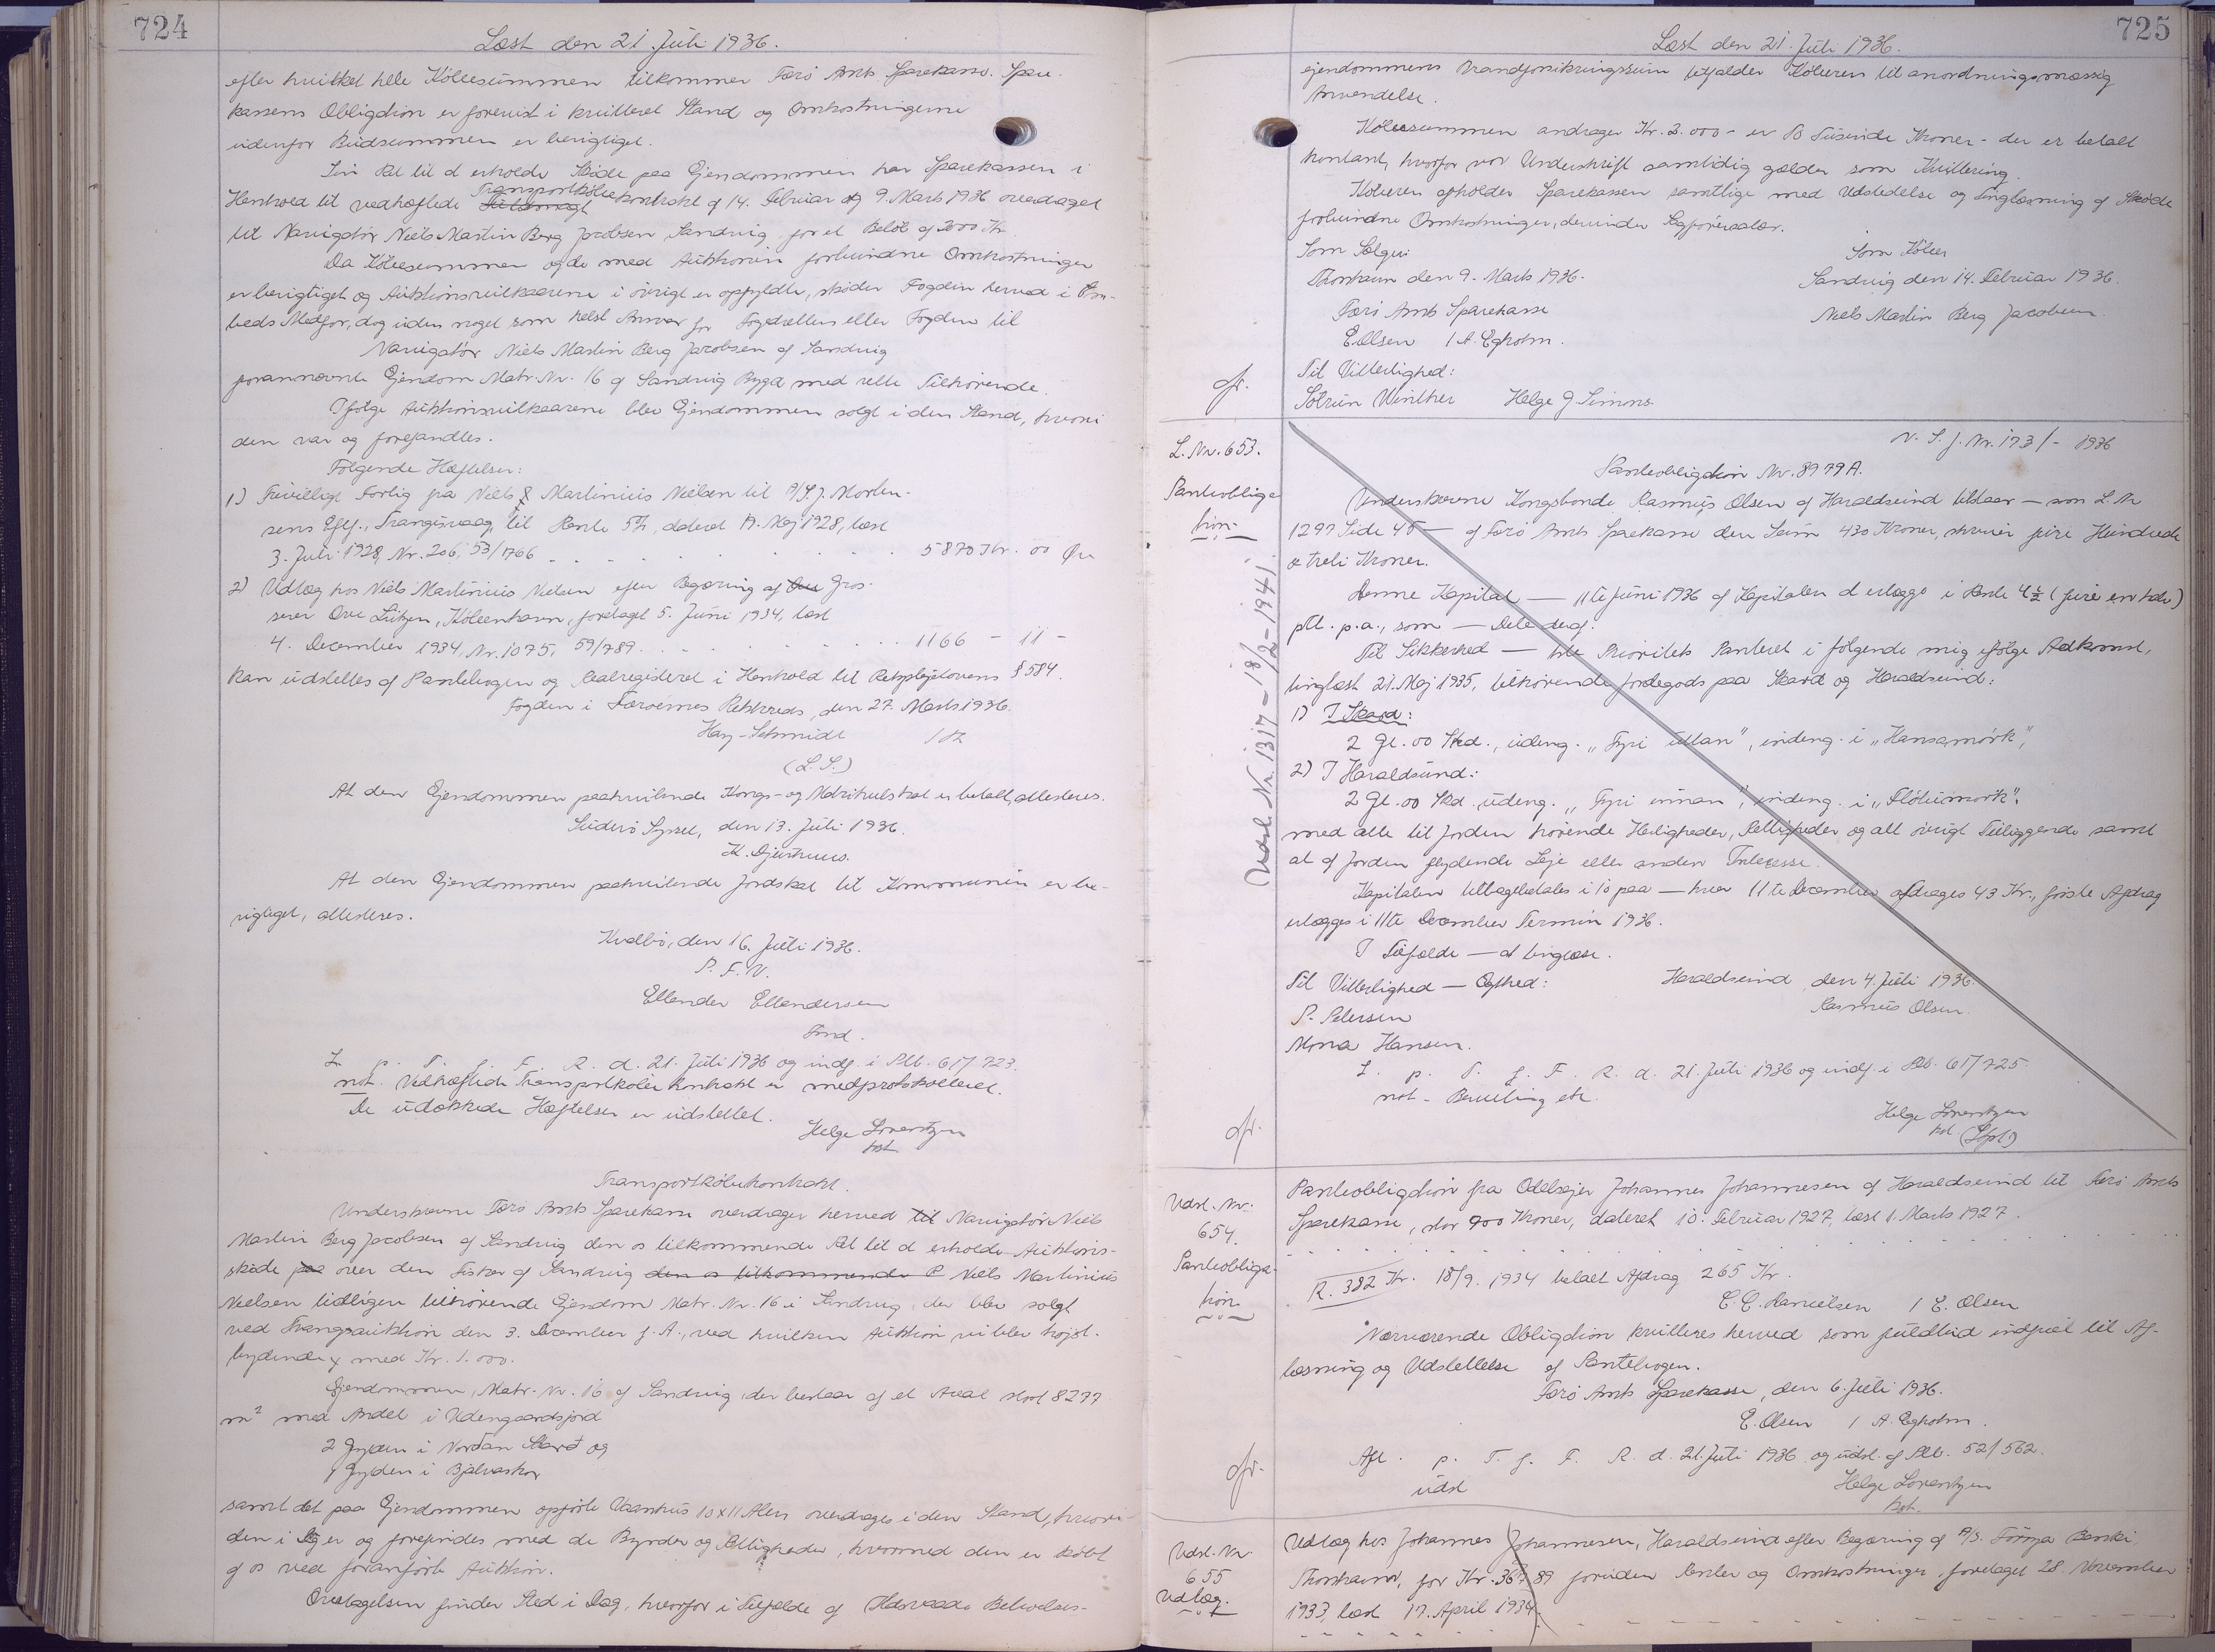 724
Læst den 21. Juli 1936.
efter hvilket hele Købesummen tilkommer Færø Amts Sparekasse. Spare-
kassens Obligation er forevist i kvitteret Stand og Omkostningerne
udenfor Budsummen er berigtiget.
Sin Ret til at erholde Skøde paa Ejendommen har Sparekassen i
Henhold til vedhæftede Transportkøbekontrakt af 14. Februar og 9. Marts 1936 overdraget
til Navigatør Niels Martin Berg Jacobsen, Sandvig for et Beløb af 2000 Kr.
Da Købesummen og de med Auktionen forbundne Omkostninger
er berigtiget og Auktionsvilkaarene i øvrigt er opfyldte, skøder Fogden herved i Em-
beds Medfør, dog uden noget som helst Ansvar for Fogedretten eller Fogden til
Navigatør Niels Martin Berg Jacobsen af Sandvig
forannævnte Ejendom Matr. Nr. 16 af Sandvig Bygd med rette Tilhørende.
Ifølge Auktionsvilkaarene blev Ejendommen solgt i den Stand, hvori
den var og forefandtes.
Følgende Hæftelser:
1) Frivilligt Forlig fra Niels Martinius Nielsen til A/S J. Morten-
sens Eftf., Trangisvaag, til Rente 5%, dateret 19. Maj 1928, læst
3. Juli 1928, Nr. 206, 53/1766 . . . . . . . 5870 Kr. 00 Øre
2) Udlæg hos Niels Martinius Nielsen efter Begæring af Gros-
serer Ove Lützen, København, foretaget 5. Juni 1934, læst
4. December 1934, Nr. 1075, 59/789. . . . . . . . 1166 - 11 -
kan udslettes af Pantebogen og Realregisteret i Henhold til Retsplejelovens § 584.
Fogden i Færøernes Retskreds, den 27. Marts 1936.
Hay-Schmidt
(L.S.)
At den Ejendommen paahvilende Konge- og Matrikulskat er betalt, attesteres.
Suderø Syssel, den 13. Juli 1936.
K. Djurhuus.
At den Ejendommen paahvilende Jordskat til Kommunen er be-
rigtiget, attesteres.
Kvalbø, den 16. Juli 1936.
P. F. V.
Ellendur Ellendersen
Fmd.
L. p. T. f. F. R. d. 21. Juli 1936 og indf. i Ptb. 61/723.
not. Vedhæftede Transportkøbekontrakt er medprotokolleret.
De udslettede Hæftelser er udslettet.
Helge Lorentzen
kst.
Transportkøbekontrakt.
Underskrevne Færø Amts Sparekasse overdrager herved til Navigatør Niels
Martin Berg Jacobsen af Sandvig den os tilkommende Ret til at erholde Auktions-
skøde paa over den Fisker af Sandvig den os tilkommende R Niels Martinius
Nielsen tidligere tilhørende Ejendom Matr. Nr. 16 i Sandvig, der blev solgt
ved Tvangsauktion den 3. December f. A., ved hvilken Auktion vi blev højst-
bydende med Kr. 1.000.
Ejendommen, Matr. Nr. 16 af Sandvig, der bestaar af et Areal stort 8277
m² med Andel i Udengaardsjord
2 Gylden i Nordan Skard og
1 Gylden i Bjálvaskor
samt det paa Ejendommen opførte Vaanhus 10 x 11 Alen overdrages i den Stand, hvori
den i Dag er og forefindes med de Byrder og Rettigheder, hvormed den er købt
af os ved foranførte Auktion.
Overtagelsen finder Sted i Dag, hvorfor i Tilfælde af Ildsvaade Beboelses-
725
Læst den 21. Juli 1936.
ejendommens Brandforsikringssum tilfalder Køberen til anordningsmæssig
Anvendelse.
Købesummen andrager Kr. 2.000 - er To Tusinde Kroner - der er betalt
kontant, hvorfor vor Underskrift samtidig gælder som Kvittering.
Køberen afholder Sparekassen samtlige med Udstedelse og Tinglæsning af Skøde
forbundne Omkostninger, derunder Sagførersalær.
Som Sælger:
Thorshavn den 9. Marts 1936.
Færø Amts Sparekasse
E. Olsen / A. Egholm.
Som Køber
Sandvig den 14. Februar 1936.
Niels Martin Berg Jacobsen.
Til Vitterlighed:
Sólrun Winther Helge J. Simons
L. Nr. 653.
Pantobliga-
tion.
Udsl. Nr. 1317 - 18/2 - 1941
N. S. J. Nr. 173/- 1936
Panteobligation Nr. 8979A.
Underskrevne Kongsbonde Rasmus Olsen af Haraldssund tilstaar — som L. Nr
1297 Side 45 — af Færø Amts Sparekasse den Sum 430 Kroner, skriver fire Hundrede
o treti Kroner.
Denne Kapital — 11te Juni 1936 af Kapitalen at erlægge i Rente 4½ (fire en halv)
pCt. p.a., som — Dele deraf.
Til Sikkerhed — 1ste Prioritets Panteret i følgende mig ifølge Adkomst,
tinglæst 21. Maj 1935, tilhørende Jordegods paa Skard og Haraldssund:
1) I Skard:
2 Gl. 00 Skd., udeng. „Fyri uttan", indeng. i „Hansamørk",
2) I Haraldsund:
2 Gl. 00 Skd. udeng. „Fyri innan", indeng. i „Fløtumørk".
med alle til Jorden hørende Herligheder, Rettigheder og alt øvrigt Tilliggende samt
at af Jorden flydende Leje eller anden Interesse.
Kapitalen tilbagebetales i 10 paa — hver 11te December afdrages 43 Kr., første Afdrag
erlægges i 11te December Termin 1936.
I Tilfælde — at tinglæse.
Til Vitterlighed — Egthed:
P. Petersen
Mona Hansen.
Haraldssund, den 4. Juli 1936.
Rasmus Olsen.
L. p. T. f. F. R. d. 21. Juli 1936 og indf. i Ptb. 61/725.
not - Bevilling etc.
Helge Lorentzen
kst.
Udsl. Nr.
654.
Panteobliga-
tion.
Panteobligation fra Odelsejer Johannes Johannesen af Haraldssund til Færø Amts
Sparekasse, stor 900 Kroner, dateret 10. Februar 1927, læst 1. Marts 1927.
R. 382 Kr. 18/9. 1934 betalt Afdrag 265 Kr.
C. C. Danielsen / E. Olsen
Nærværende Obligation kvitteres herved som fuldtud indfriet til Af-
læsning og Udslettelse af Pantebogen.
Færø Amts Sparekasse, den 6. Juli 1936.
E. Olsen / A. Egholm.
Afl. p. T. f. F. R. d. 21. Juli 1936 og udsl. af Ptb. 52/562.
udsl
Helge Lorentzen
kst.
Udsl. Nr.
655
Udlæg.
Udlæg hos Johannes Johannesen, Haraldssund efter Begæring af A/S. Føroya Banki,
Thorshavn, for Kr. 367 89 foruden Renter og Omkostninger, foretaget 28. November
1933, læst 17. April 1934.